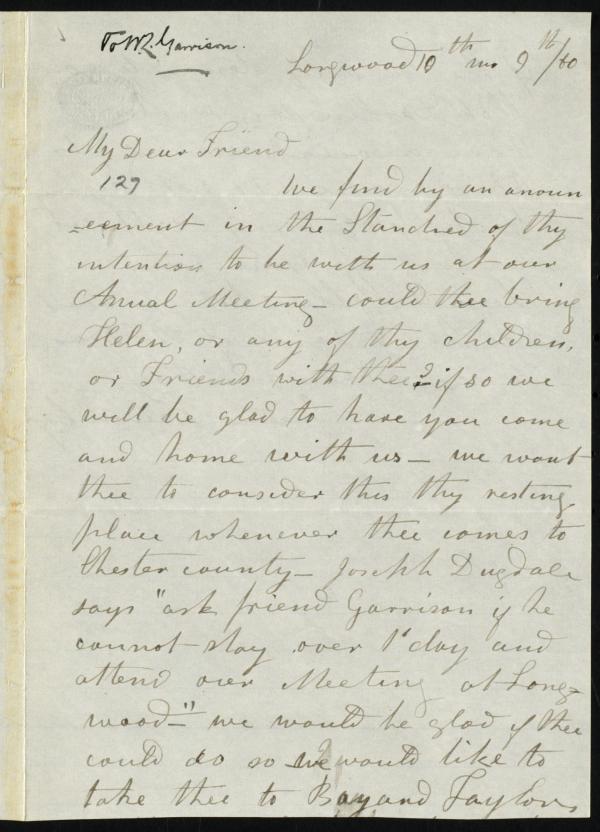 To W. L. Garrison.
Longwood 10th mo 9th/60
My Dear Friend
127
We find by an anoun
=cement in the Standred of thy
intention to be with us at our
Annual Meeting - could thee bring
Helen, or any of thy children,
or Friends with thee? - if so we
will be glad to have you come
and home with us - we want
thee to consider this thy resting
place whenever thee comes to
Chester county - Joseph Dugdale
says "ask friend Garrison if he
cannot stay over 1st day and
attend our Meeting at Long=
wood -" we would be glad if thee
could do so we would like to
take thee to Bayard Taylors